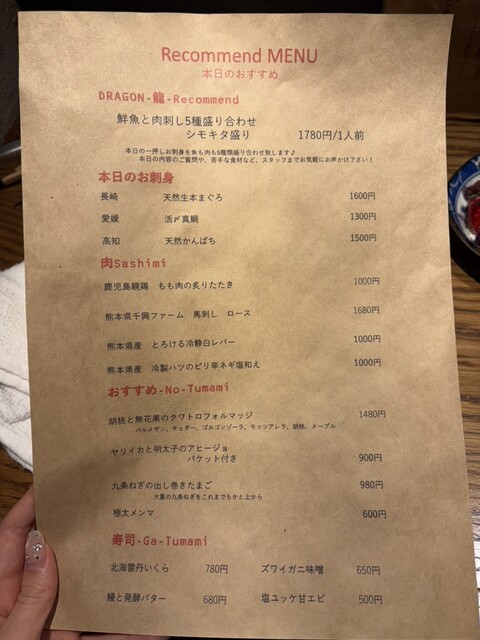 Recommend MENU
本日のおすすめ
DRAGON-龍-Recommend
鮮魚と肉刺し5種盛り合わせ
シモキタ盛り 1780円/1人前
本日の一押しお刺身を魚も肉も5種類盛り合わせ致します♪
本日の内容のご質問や、苦手な食材など、スタッフまでお気軽にお声かけ下さい！
本日のお刺身
長崎 天然生本まぐろ 1600円
愛媛 活〆真鯛 1300円
高知 天然かんぱち 1500円
肉Sashimi
鹿児島親鶏 もも肉の炙りたたき 1000円
熊本県千興ファーム 馬刺し ロース 1680円
熊本県産 とろける冷静白レバー 1000円
熊本県産 冷製ハツのピリ辛ネギ塩和え 1000円
おすすめ-No-Tumami
胡桃と無花果のクワトロフォルマッジ 1480円
パルメザン、チェダー、ゴルゴンゾーラ、モッツアレラ、胡桃、メープル
ヤリイカと明太子のアヒージョ
バケット付き 900円
九条ねぎの出し巻きたまご 980円
大量の九条ねぎをこれまでもかと上から
極太メンマ 600円
寿司-Ga-Tumami
北海雲丹いくら 780円 ズワイガニ味噌 650円
鰻と発酵バター 680円 塩ユッケ甘エビ 500円